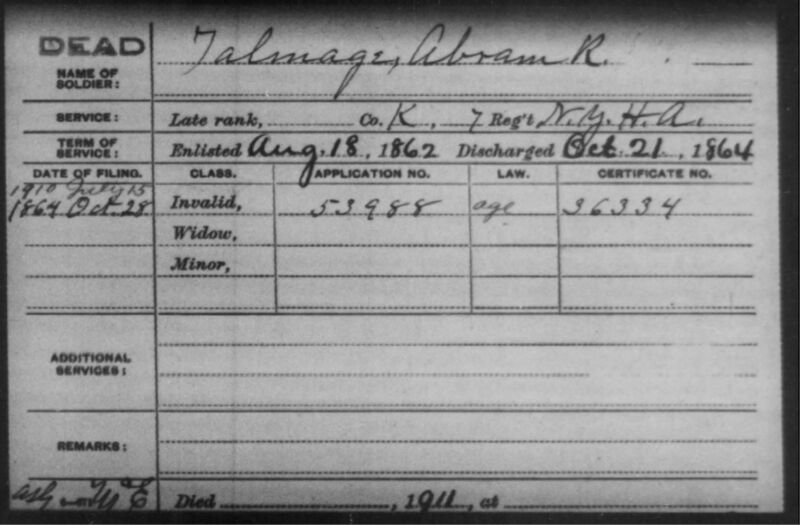 DEAD
NAME OF SOLDIER: Talmage, Abram R.
SERVICE: Late rank, Co. K, 7 Reg't N.Y.H.A.
TERM OF SERVICE: Enlisted Aug. 18, 1862 Discharged Oct. 21, 1864
DATE OF FILING. CLASS. APPLICATION NO. LAW. CERTIFICATE NO.
1910 July 15
1864 Oct. 28 Invalid, 53988 age 36334
Widow,
Minor,
ADDITIONAL SERVICES:
REMARKS:
Died , 1911, at